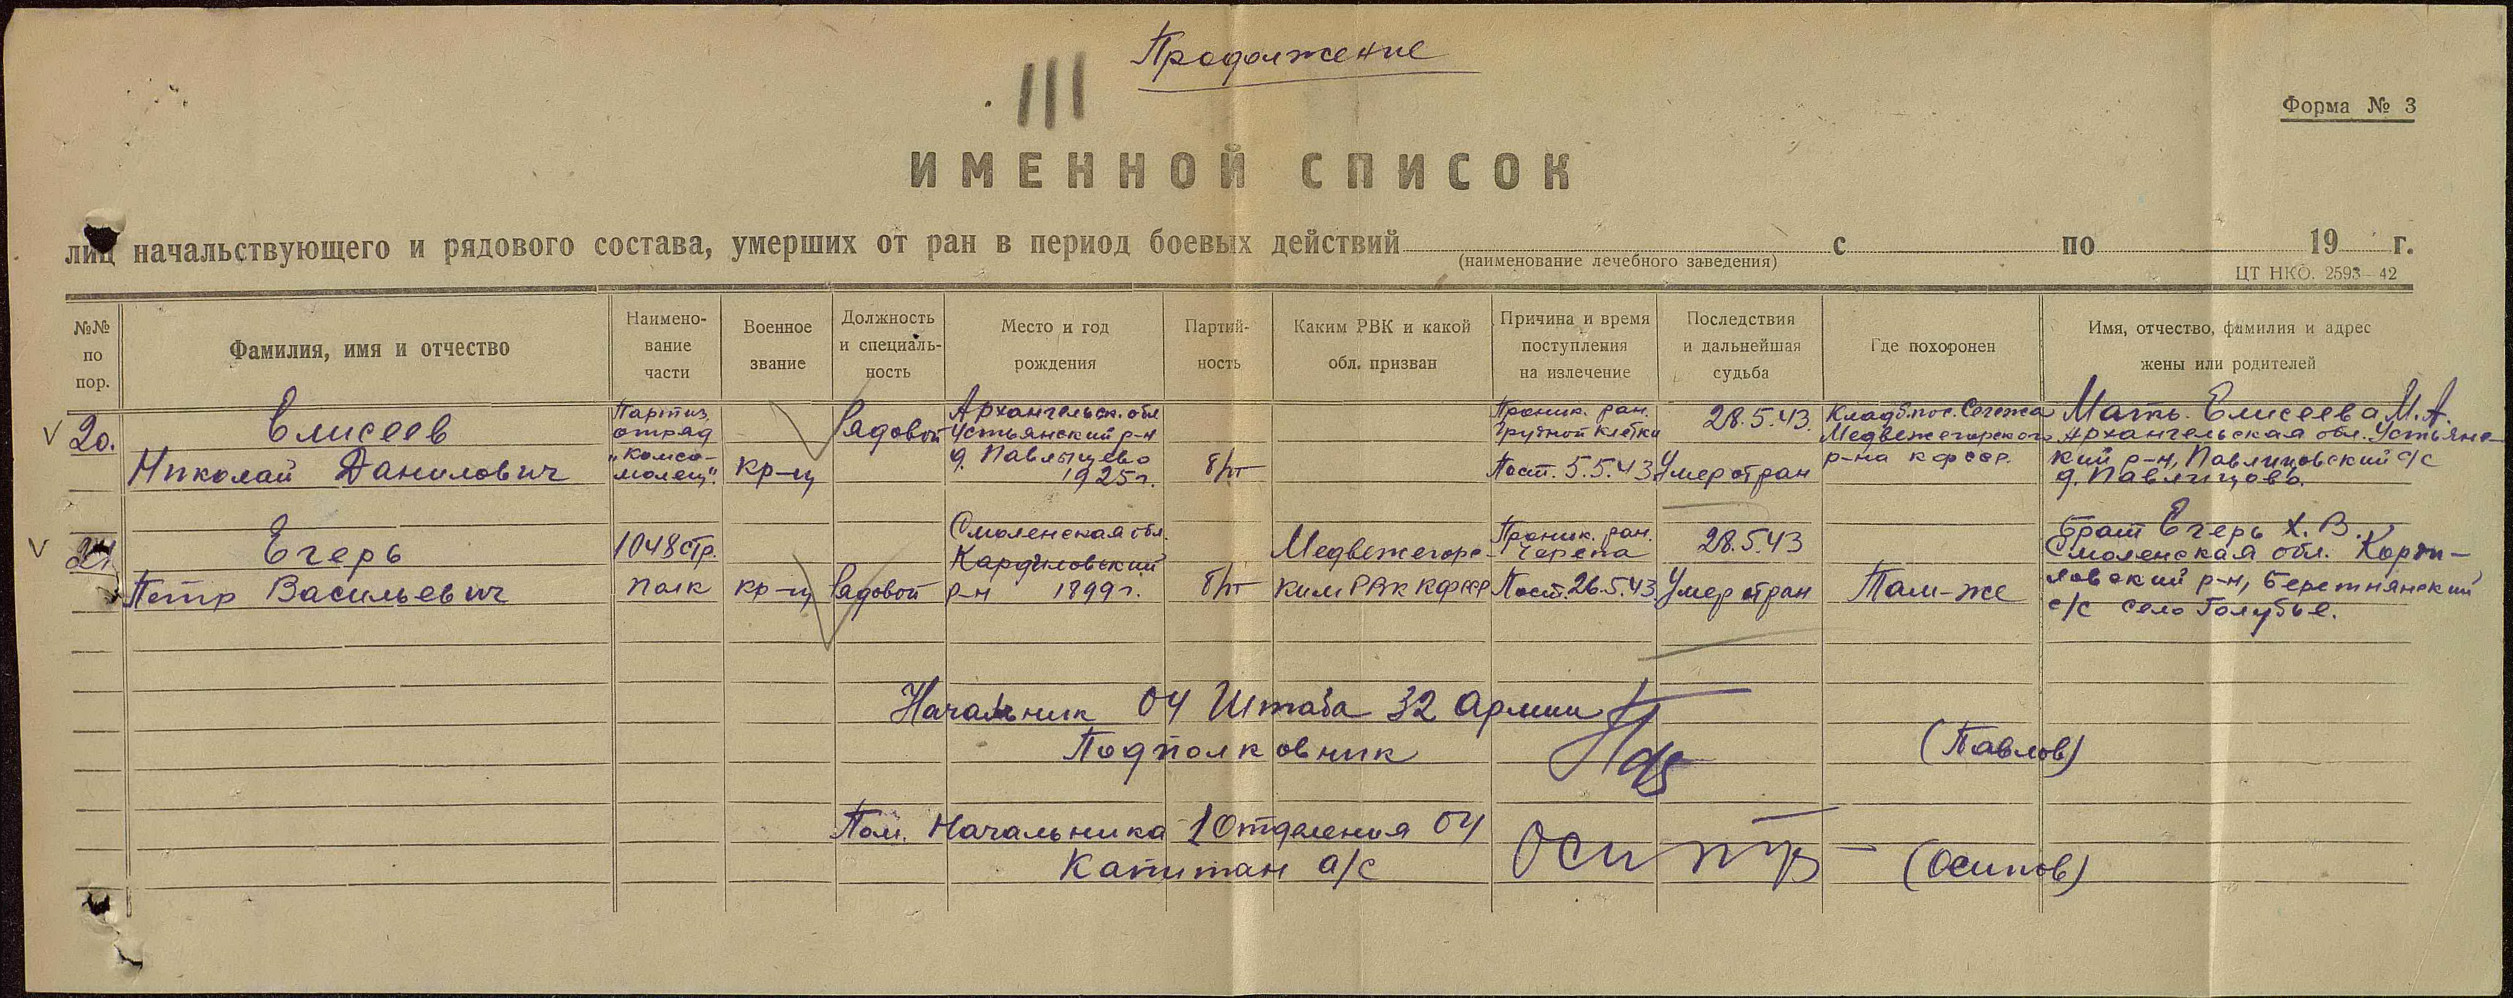 Продолжение
III
Форма № 3
ИМЕННОЙ СПИСОК
лиц начальствующего и рядового состава, умерших от ран в период боевых действий с по 19 г.
(наименование лечебного заведения)
ЦТ НКО. 2593—42
№№ по пор.
Фамилия, имя и отчество
Наимено- вание части
Военное звание
Должность и специаль- ность
Место и год рождения
Партий- ность
Каким РВК и какой обл. призван
Причина и время поступления на излечение
Последствия и дальнейшая судьба
Где похоронен
Имя, отчество, фамилия и адрес жены или родителей
20.
Елисеев
Николай Данилович
Партиз.
отряд
„Комсо-
молец".
кр-ц
Рядовой
Архангельск. обл
Устьянский р-н
д. Павлицево
1925 г.
б/п
Проник. ран.
Грудной клетки
Пост. 5.5.43
28.5.43.
Умер от ран
Кладб. пос. Сегежа
Медвежегорского
р-на КФССР.
Мать. Елисеева М.А.
Архангельская обл. Устьянс-
кий р-н, Павлицовский с/с
д. Павлицово.
21
Егерь
Петр Васильевич
1048 стр.
полк
кр-ц
Рядовой
Смоленская обл.
Кардымовский
р-н 1899 г.
б/п
Медвежегорс-
ким РВК КФССР
Проник. ран.
Черепа
Пост. 26.5.43
28.5.43
Умер от ран
Там-же
Брат Егерь Х.В.
Смоленская обл. Карды-
мовский р-н, Бережнянский
с/с село Голубье.
Начальник ОУ Штаба 32 Армии
Подполковник
(Павлов)
Пом. Начальника 1 Отделения ОУ
Капитан а/с
Осипов
(Осипов)